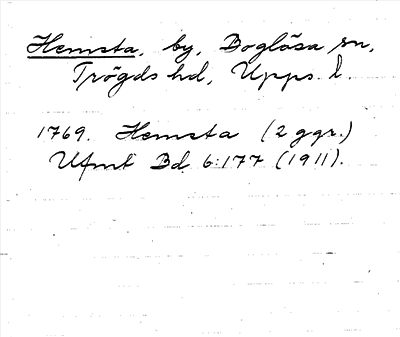 Hemsta, by, Boglösa sn,
Trögds hd, Upps. l.
1769. Hemsta (2 ggr.)
Ufmt Bd 6:177 (1911).